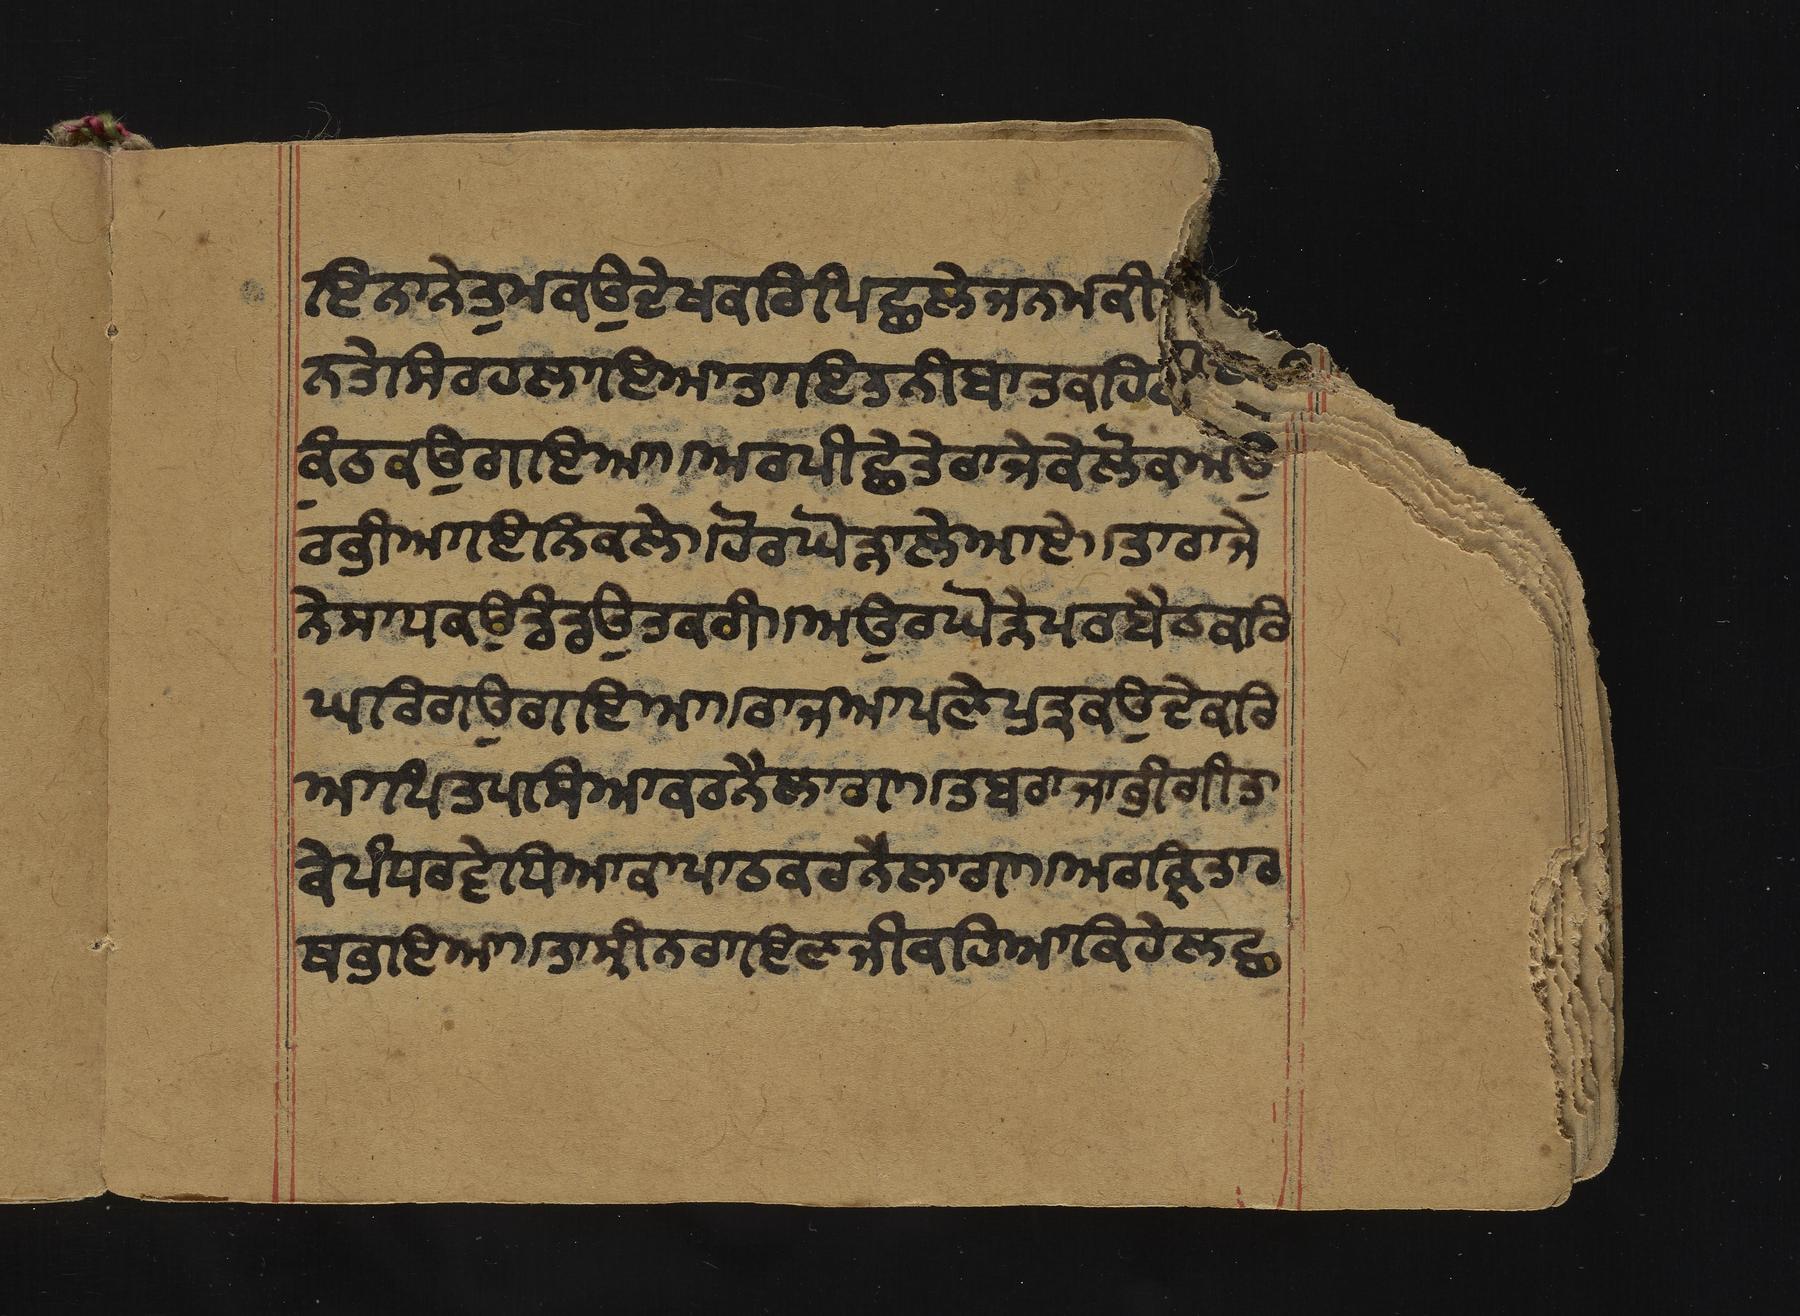 ਇਨਾਨੇਤੁਮਕਉਦੇਖਕਰਿਪਿਛਲੇਜਨਮਕੀ
ਨਤੇਸਿਰਹਲਾਇਆਤਾਇਤਨੀਬਾਤਕਹਿ
ਕੁੰਠਕਉਗਾਇਆ।ਅਰਪੀਛੇਤੇਰਾਜੇਕੇਲੋਕਅਉ
ਰਭੀਆਇਨਿਕਲੇ।ਹੋਰਘੋੜਾਲੇਆਏ।ਤਾਰਾਜੇ
ਨੇਸਾਧਕਉਡੰਡਉਤਕਰੀ।ਅਉਰਘੋੜੇਪਰਬੈਠਕਰਿ
ਘਰਿਗਉਗਾਇਆ।ਰਾਜਆਪਣੇਪੁਤ੍ਰਕਉਦੇਕਰਿ
ਆਪਿਤਪਸਿਆਕਰਨੈਲਾਗਾ।ਤਬਰਾਜਾਭੀਗੀਤਾ
ਕੇਪੰਧਰਵੇਧਿਆਕਾਪਾਠਕਰਨੈਲਾਗਾ।ਅਰਕ੍ਰਿਤਾਰ
ਥਭਇਆ।ਤਾਸ੍ਰੀਨਰਾਇਣਜੀਕਹਿਆਕਿਹੇਲਛ